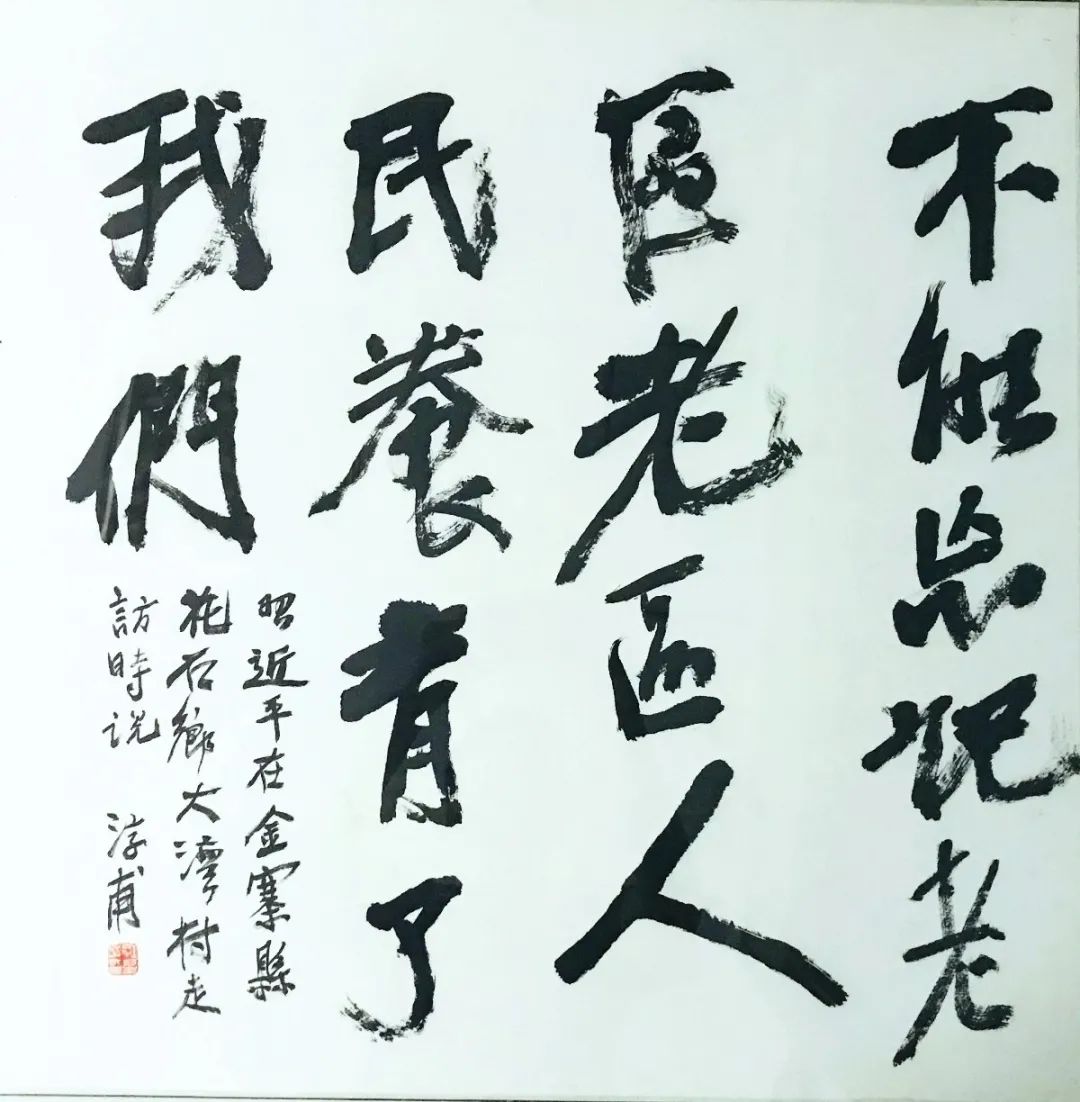 不能忘記老
區老區人
民養育了
我們
習近平在金寨縣
花石鄉大灣村走
訪時说
甫